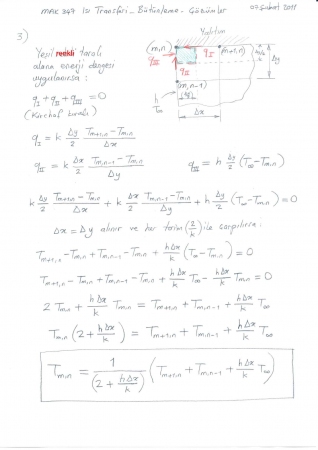 MAK 347 Isı Transferi - Bütünleme - Çözümler 07 Şubat 2011
3)
Yeşil reekli taralı
alana enerji dengesi
uygulanırsa:
q_I + q_II + q_III = 0
(Kirchof benzeri)
Yalıtım
m,n
m+1,n
m,n-1
q_I
q_III
q_II
Δy/2
Δy
h
T∞
Δx/2
Δx
q_I = k Δy/2 (T_{m+1,n} - T_{m,n})/Δx
q_II = k Δx/2 (T_{m,n-1} - T_{m,n})/Δy q_III = h Δy/2 (T∞ - T_{m,n})
k Δy/2 (T_{m+1,n} - T_{m,n})/Δx + k Δx/2 (T_{m,n-1} - T_{m,n})/Δy + h Δy/2 (T∞ - T_{m,n}) = 0
Δx = Δy alınır ve her terim (2/k) ile çarpılırsa:
T_{m+1,n} - T_{m,n} + T_{m,n-1} - T_{m,n} + hΔx/k (T∞ - T_{m,n}) = 0
T_{m+1,n} - T_{m,n} + T_{m,n-1} - T_{m,n} + hΔx/k T∞ - hΔx/k T_{m,n} = 0
2 T_{m,n} + hΔx/k T_{m,n} = T_{m+1,n} + T_{m,n-1} + hΔx/k T∞
T_{m,n} (2 + hΔx/k) = T_{m+1,n} + T_{m,n-1} + hΔx/k T∞
T_{m,n} = 1/(2 + hΔx/k) (T_{m+1,n} + T_{m,n-1} + hΔx/k T∞)